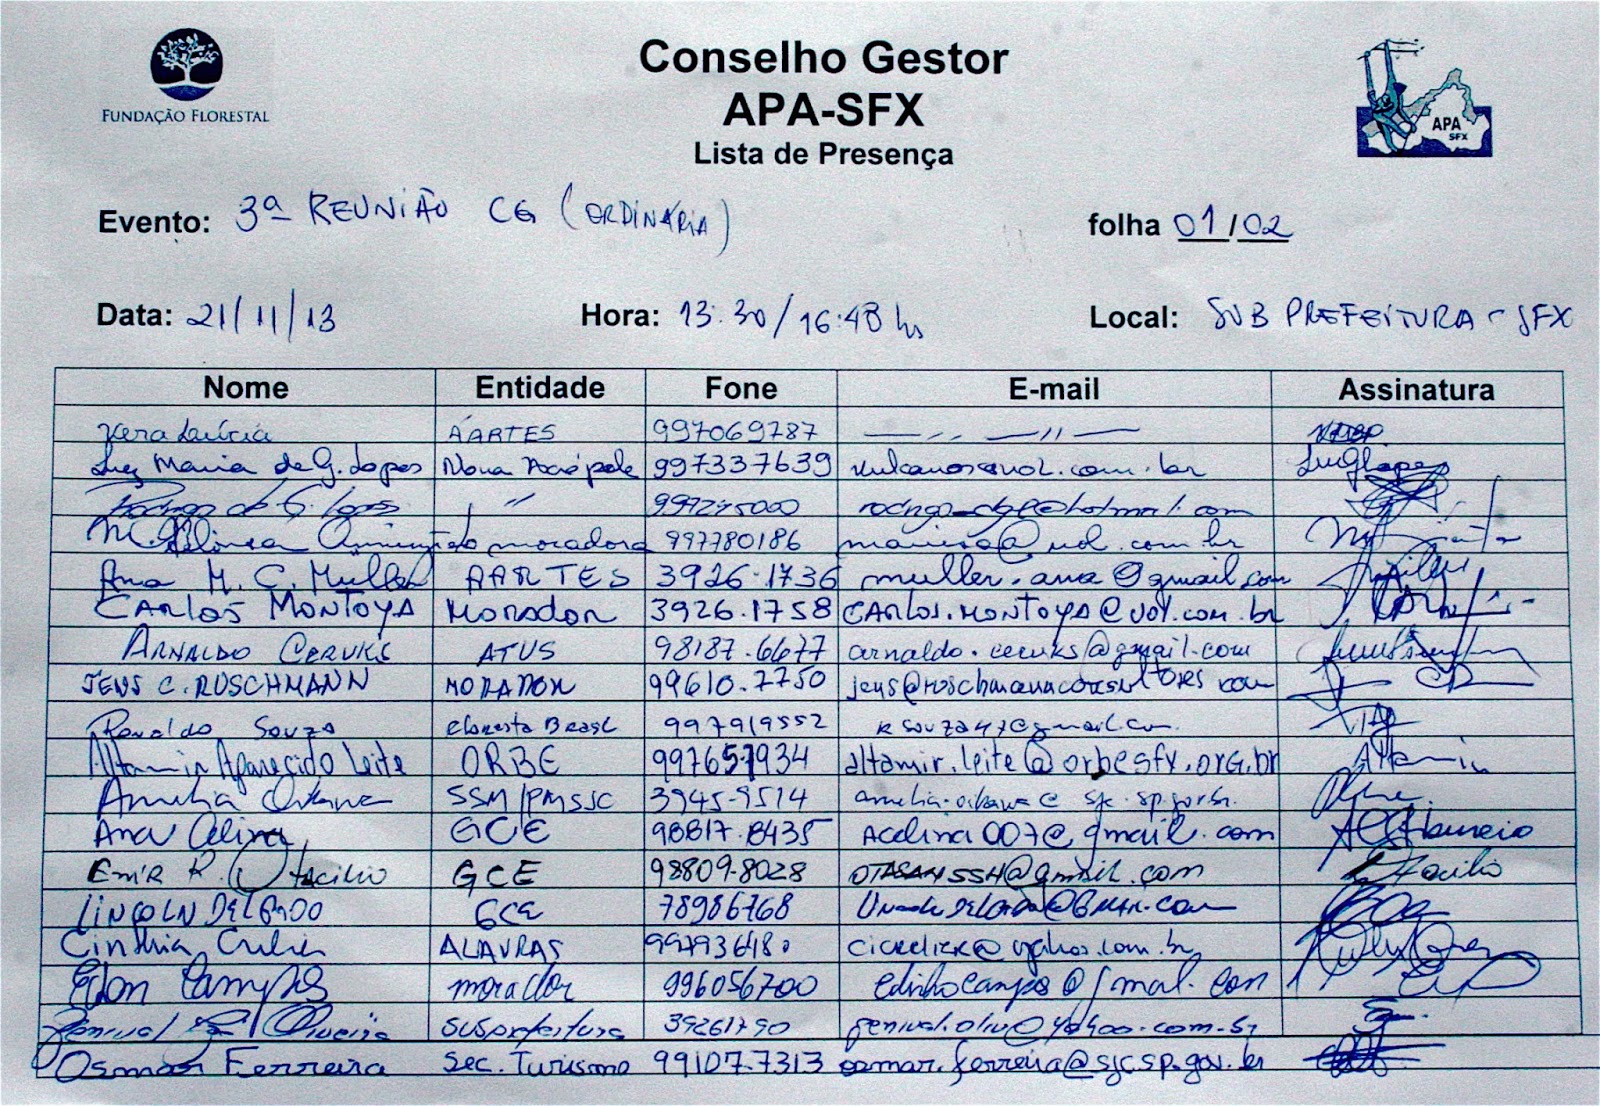 FUNDAÇÃO FLORESTAL
Conselho Gestor
APA-SFX
Lista de Presença
APA
SFX
Evento: 3ª REUNIÃO CG (ORDINÁRIA)
folha 01/02
Data: 21/11/13
Hora: 13:30/16:48 hs
Local: SUB PREFEITURA - SFX
Nome Entidade Fone E-mail Assinatura
Vera Lúcia ÁARTES 997069787
Luz Maria de G. Lopes Nova Acrópole 997337639 vulcanos@uol.com.br
Rodrigo de G. Lopes "
M. moradora 997780186 @uol.com.br
Ana M. C. Muller AARTES 3926-1736 muller.ana@gmail.com
CARLOS MONTOYA MORADOR 3926-1758 CARLOS.MONTOYA@UOL.com.br
ARNALDO CERUKS ATUS 98187-6677 arnaldo.ceruks@gmail.com
JENS C. RUSCHMANN MORADOR 99610-7750 jens@ruschmannconsultores.com
Ronaldo Souza Floresta Brasil 997919552 RSOUZA47@gmail.com
Altamir Aparecido Leite ORBE 997651934 altamir.leite@orbesfx.org.br
Amelia SSM/PMSJC 3945-9514
Ana Celina GCE 98817-8435 Acelina007@gmail.com
EMIR R. Otacilio GCE 98809-8028 OTASANSSH@gmail.com Otacilio
LINCOLN DELGADO GCE 78986768
Cinthia ALAVRAS @yahoo.com.br
Edon Campos morador 996056700 edinhocampos@gmail.com
Genival Oliveira subprefeitura 39261790 genival.oliv@yahoo.com.br
Osmar Ferreira Sec. Turismo 99107.7313 osmar.ferreira@sjc.sp.gov.br